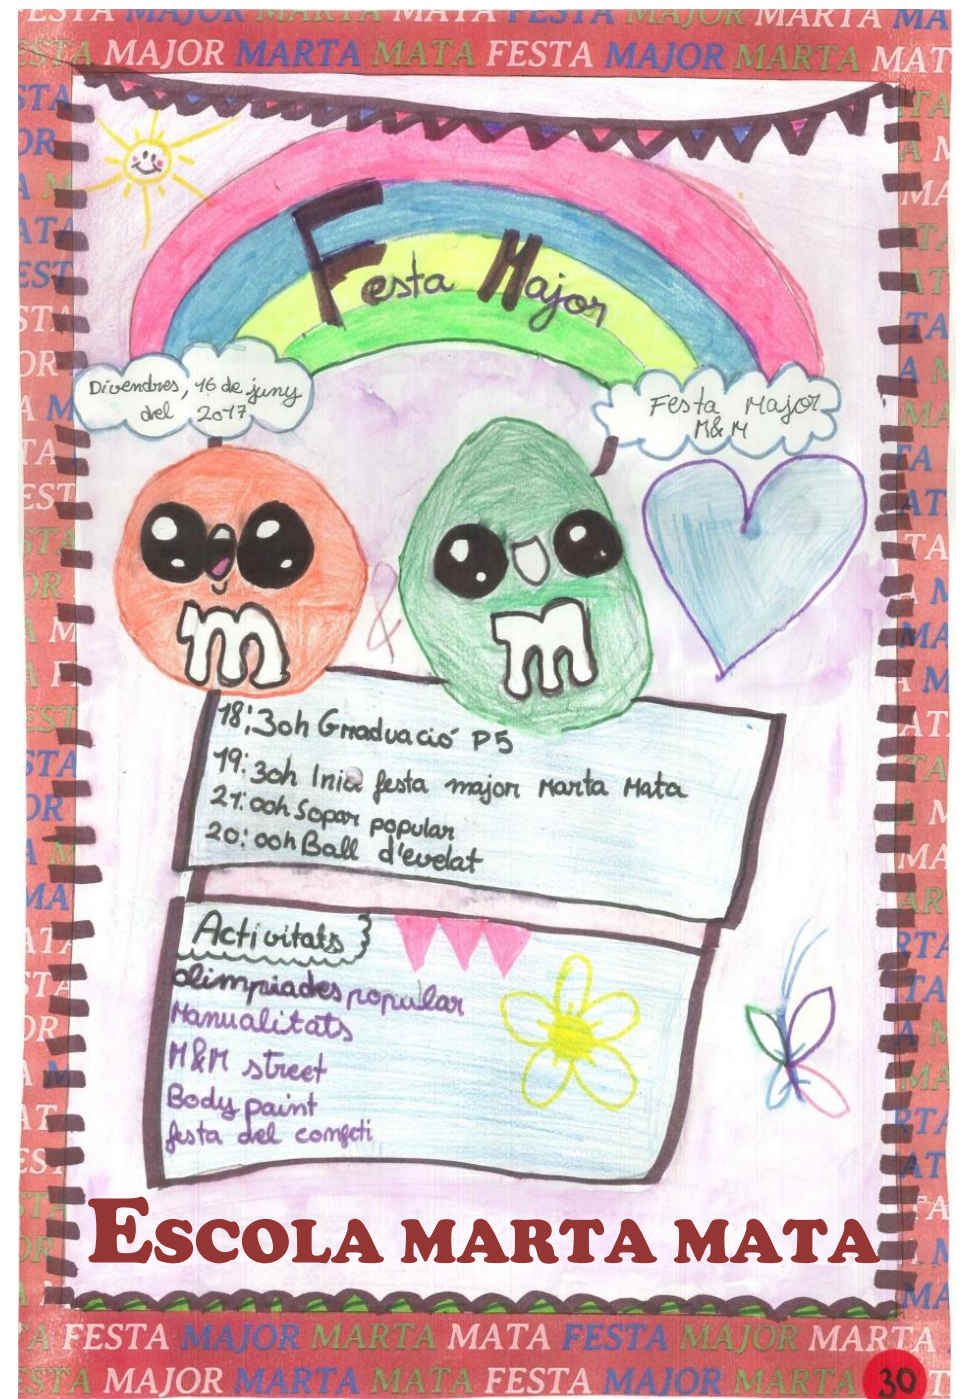 ESTA MAJOR MARTA MATA FESTA MAJOR MARTA MA
ESTA MAJOR MARTA MATA FESTA MAJOR MARTA MAT
Festa Major
Divendres, 16 de juny
del 2017
Festa Major
M&M
m & m
18:30h Graduació P5
19:30h Inici festa major Marta Mata
21:00h Sopar popular
20:00h Ball d'evelat
Activitats
olimpiades popular
Manualitats
M&M street
Body paint
festa del confeti
ESCOLA MARTA MATA
A FESTA MAJOR MARTA MATA FESTA MAJOR MARTA
STA MAJOR MARTA MATA FESTA MAJOR MARTA
30